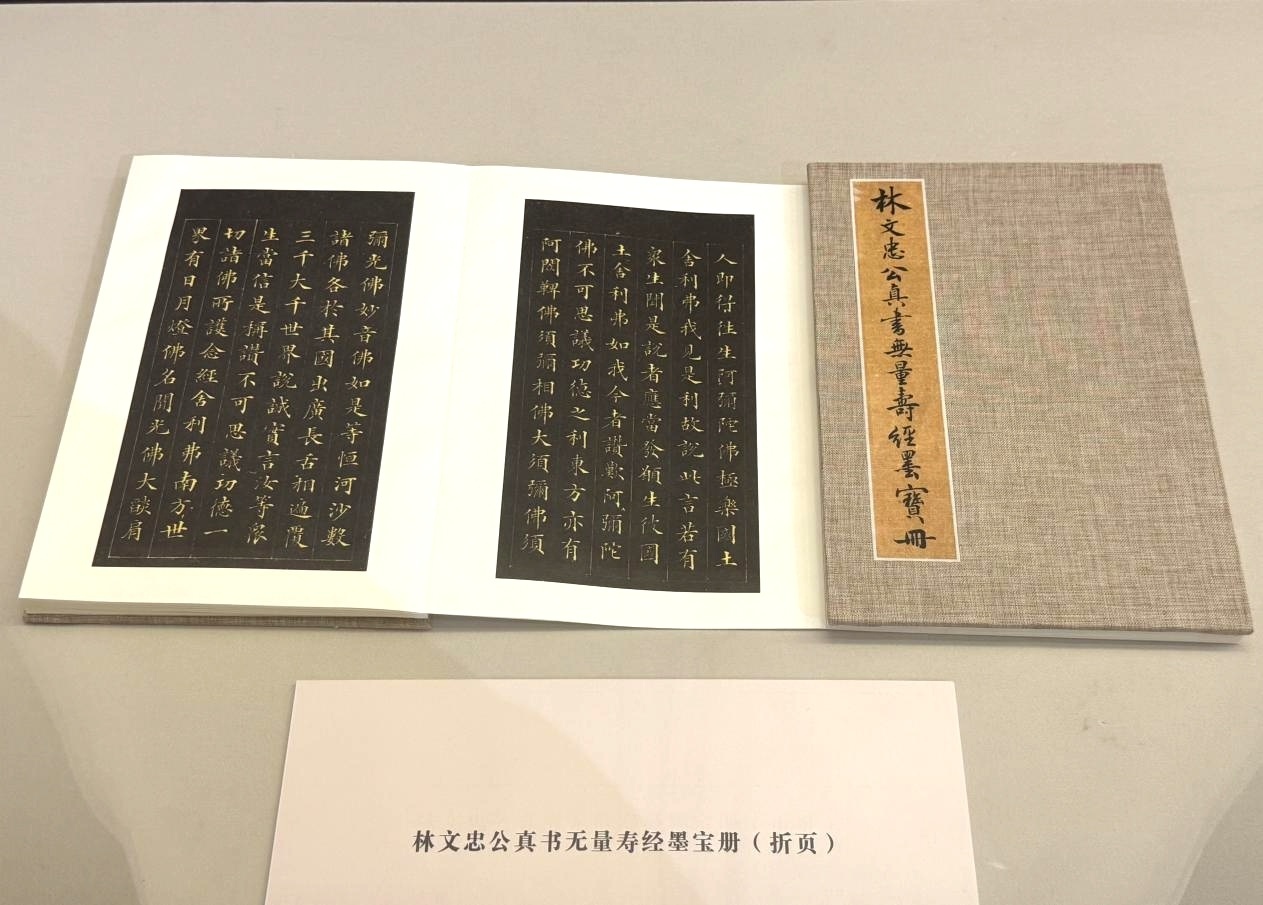 林文忠公真書無量壽經墨寶冊
人即得往生阿彌陀佛極樂國土
舍利弗我見是利故說此言若有
衆生聞是說者應當發願生彼國
土舍利弗如我今者讚歎阿彌陀
佛不可思議功德之利東方亦有
阿閦鞞佛須彌相佛大須彌佛須
彌光佛妙音佛如是等恒河沙數
諸佛各於其國出廣長舌相遍覆
三千大千世界說誠實言汝等衆
生當信是稱讚不可思議功德一
切諸佛所護念經舍利弗南方世
界有日月燈佛名聞光佛大燄肩
林文忠公真书无量寿经墨宝册（折页）